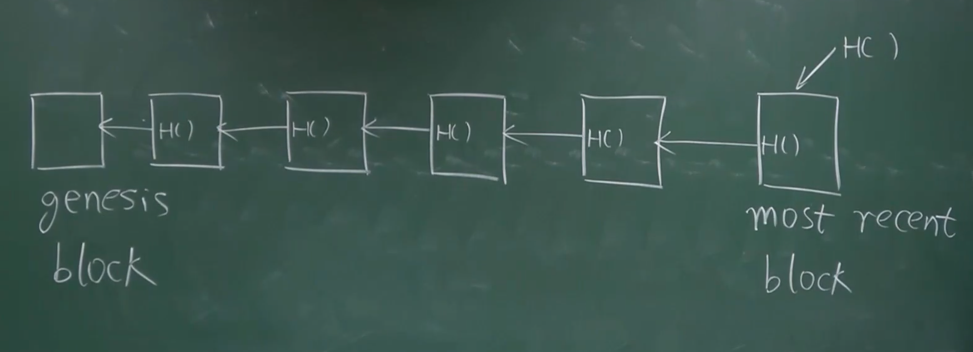 H( )
H( )
H( )
H( )
H( )
H( )
genesis
block
most recent
block